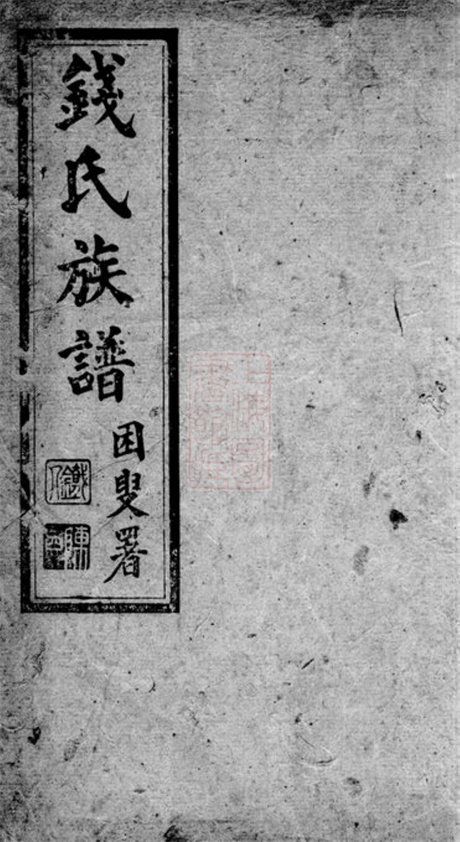 錢氏族譜
困叟署